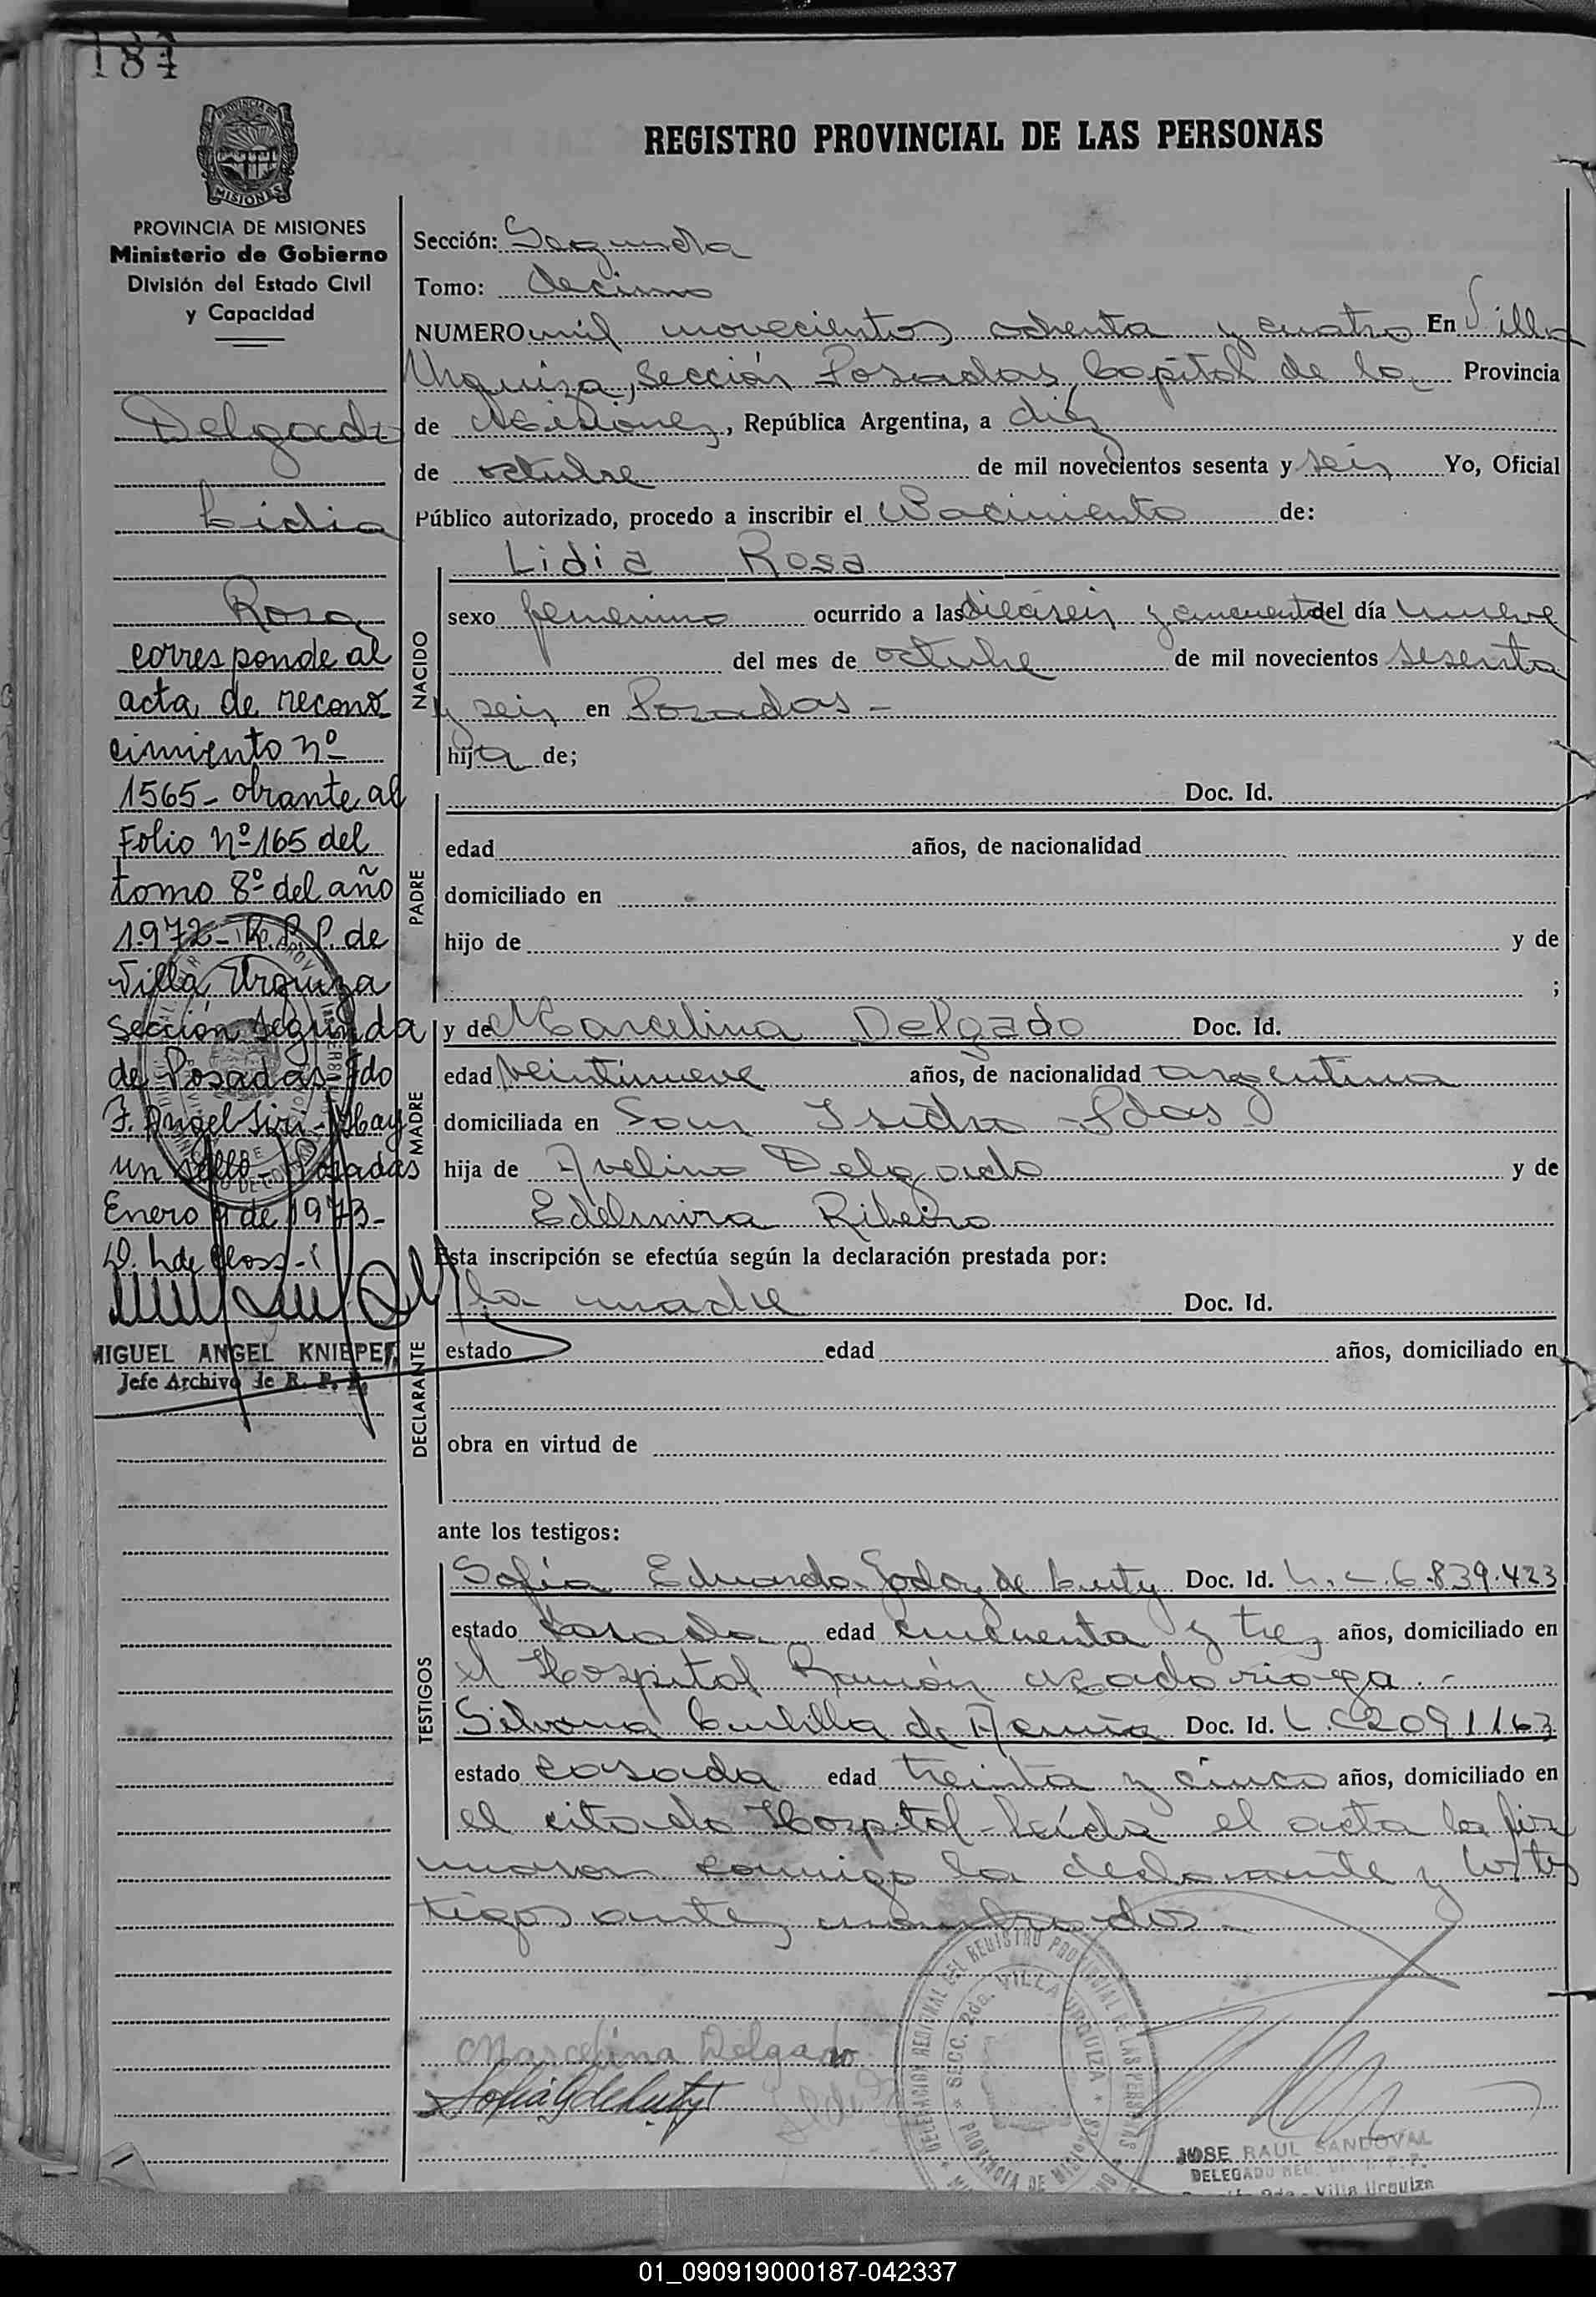 184
PROVINCIA DE
MISIONES
REGISTRO PROVINCIAL DE LAS PERSONAS
PROVINCIA DE MISIONES
Ministerio de Gobierno
División del Estado Civil
y Capacidad
Delgado
Lidia
Rosa
corresponde al
acta de recono
cimiento nº
1565- obrante al
Folio nº 165 del
tomo 8º del año
1972- R.P.P. de
Villa Urquiza
Sección Segunda
de Posadas Fdo
F. Angel Siri - Hay
un sello - Posadas
Enero 9 de 1973-
MIGUEL ANGEL KNIEPE
Jefe Archivo de R. P. P.
Sección: Segunda
Tomo: decimo
NUMERO mil novecientos ochenta y cuatro En Villa
Urquiza, Sección Posadas, Capital de la Provincia
de Misiones, República Argentina, a diéz
de octubre de mil novecientos sesenta y seis Yo, Oficial
Público autorizado, procedo a inscribir el Nacimiento de:
Lidia Rosa
NACIDO
sexo femenino ocurrido a las dieciseis y cincuenta del día nueve
del mes de octubre de mil novecientos sesenta
y seis en Posadas -
hija de;
PADRE
Doc. Id.
edad años, de nacionalidad
domiciliado en
hijo de y de
;
MADRE
y de Marcelina Delgado Doc. Id.
edad veintinueve años, de nacionalidad argentina
domiciliada en San Isidro - Pdas
hija de Avelino Delgado y de
Edelmira Ribeiro
Esta inscripción se efectúa según la declaración prestada por:
DECLARANTE
la madre Doc. Id.
estado edad años, domiciliado en
obra en virtud de
ante los testigos:
TESTIGOS
Sofía Eduarda Godoy de Doc. Id. L.C. 6.839.423
estado casada edad cincuenta y tres años, domiciliado en
el Hospital Ramón Madariaga.-
Silvana de Doc. Id. L.C 2091163
estado casada edad treinta y cinco años, domiciliado en
el citado Hospital - Leída el acta la fir
maron conmigo la declarante y los tes
tigos antes nombrados -
Marcelina Delgado
DELEGACION REGIONAL DEL REGISTRO PROVINCIAL DE LAS PERSONAS
SECC. 2da. VILLA URQUIZA
PROVINCIA DE MISIONES
JOSE RAUL SANDOVAL
DELEGADO REG.
2da - Villa Urquiza
01_090919000187-042337